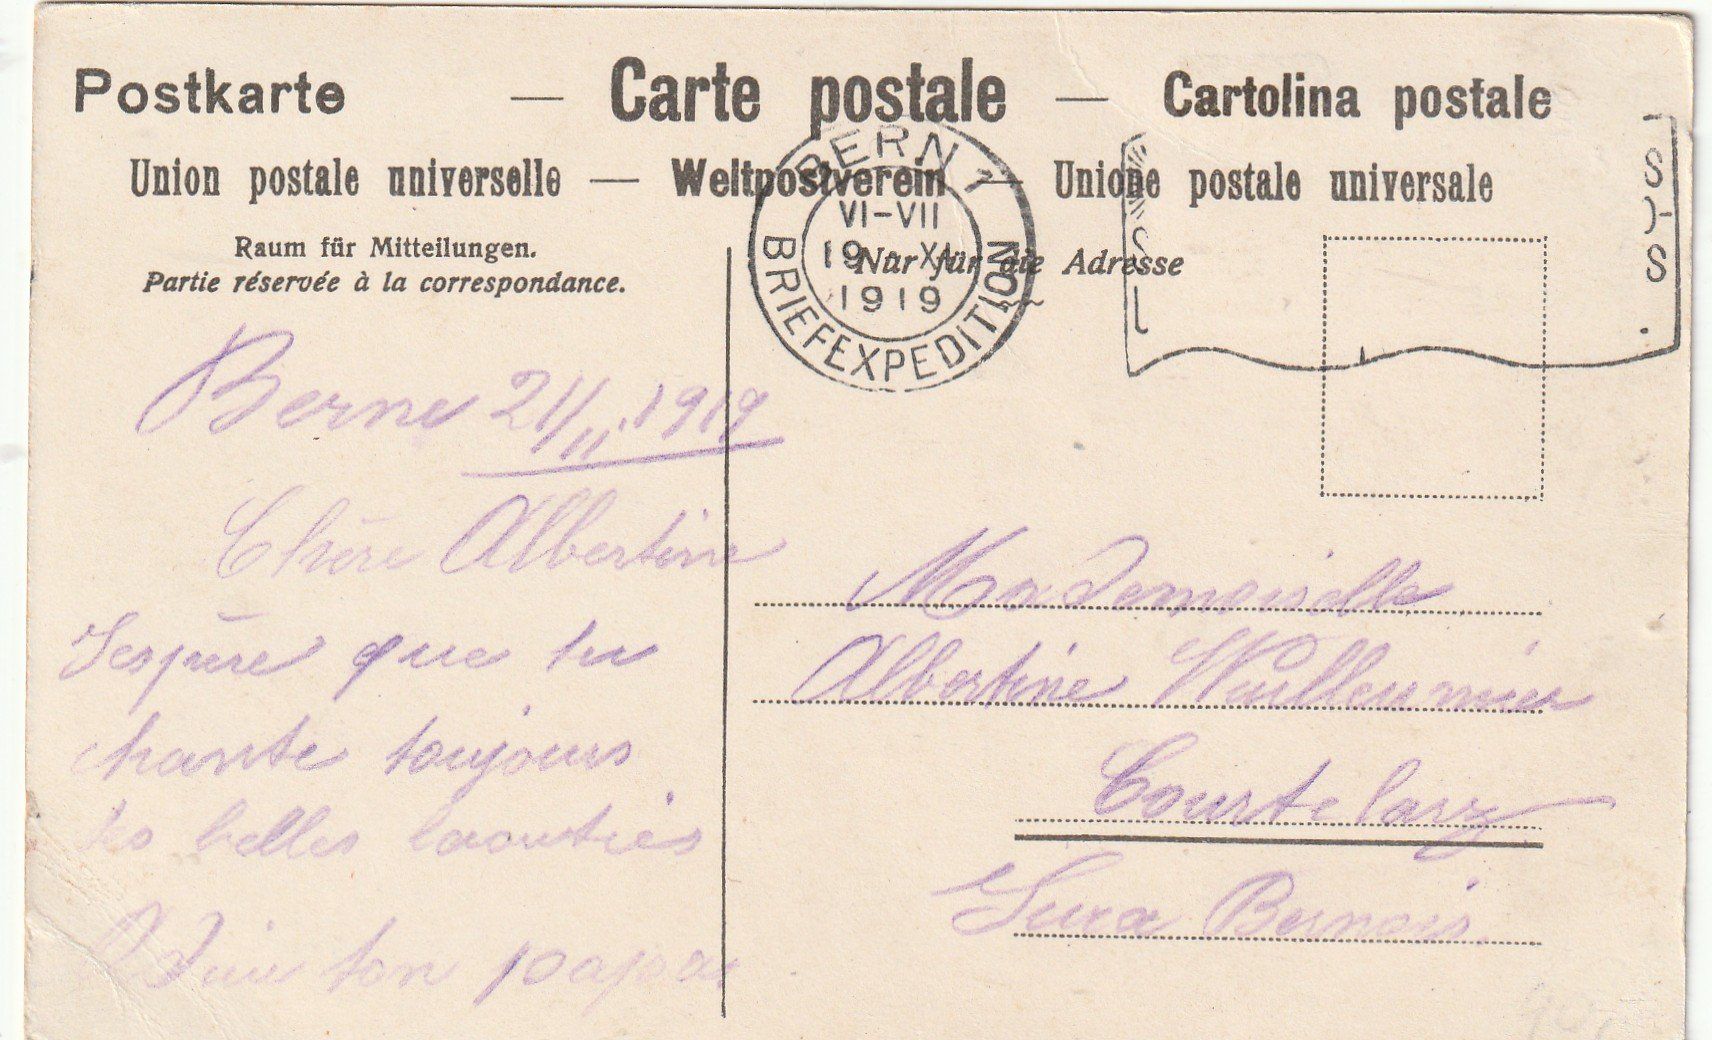 Postkarte — Carte postale — Cartolina postale
Union postale universelle — Weltpostverein — Unione postale universale
Raum für Mitteilungen.
Partie réservée à la correspondance.
Nur für die Adresse
BERN 1
VI-VII
1919
BRIEFEXPEDITION
Berne 21/11 1919
Chère Albertine
J'espère que tu
chante toujours
belles
ton papa
Mademoiselle
Albertine Wuilleumier
Courtelary
Jura Bernois.